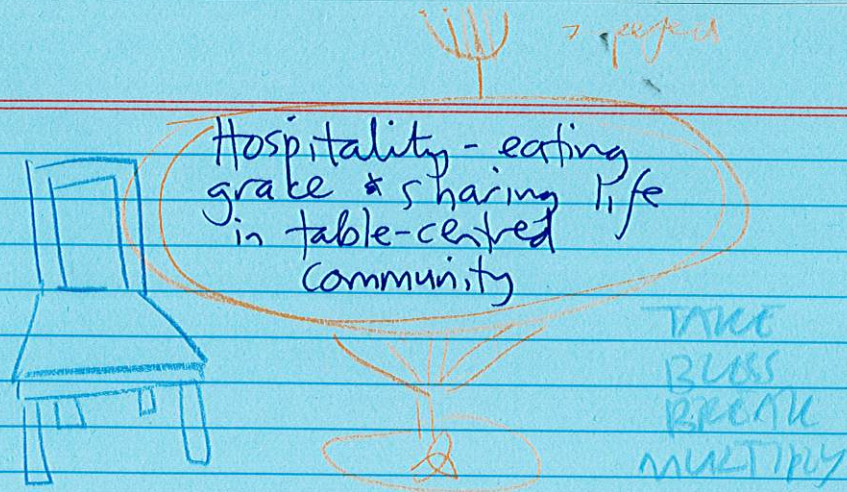 Hospitality - eating
grace & sharing life
in table-centred
community
TAKE
BLESS
BREAK
MULTIPLY